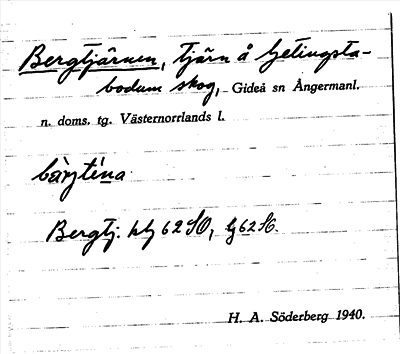 Bergtjärnen, tjärn å Getingsta-
bodum skog, Gideå sn Ångermanl.
n. doms. tg. Västernorrlands l.
Bergtj. 62 SO, 62 SO.
H. A. Söderberg 1940.